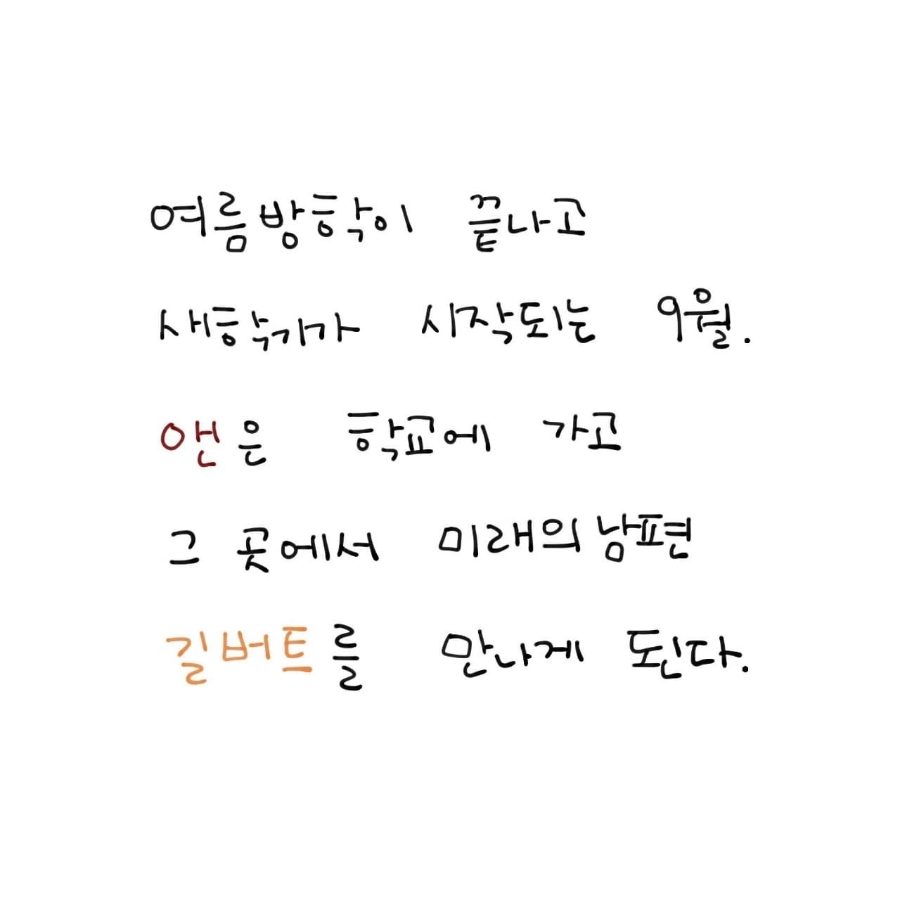 여름방학이 끝나고
새학기가 시작되는 9월.
앤은 학교에 가고
그 곳에서 미래의 남편
길버트를 만나게 된다.